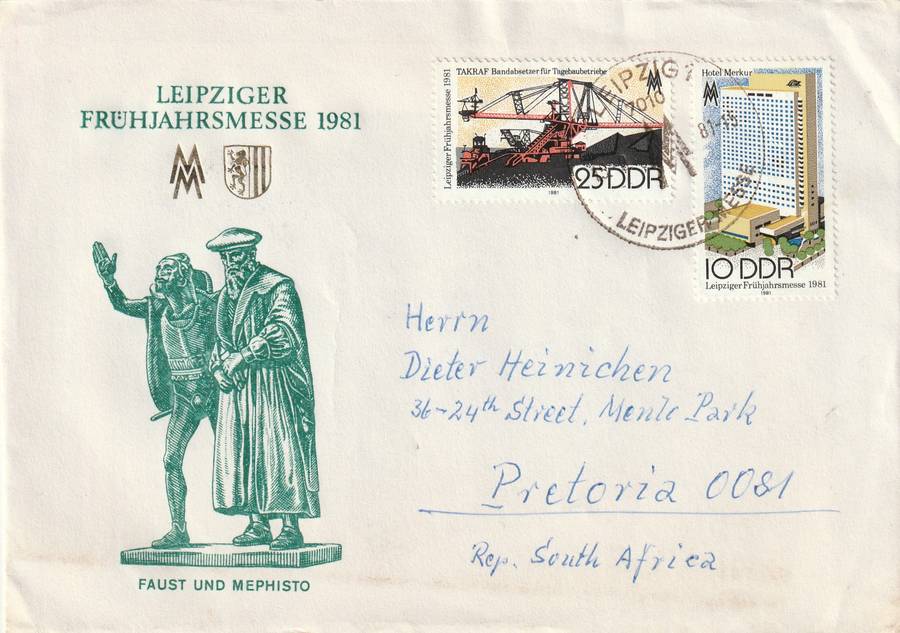 LEIPZIGER
FRÜHJAHRSMESSE 1981
MM
FAUST UND MEPHISTO
Leipziger Frühjahrsmesse 1981
TAKRAF Bandabsetzer für Tagebaubetriebe
MM
25 DDR
1981
Hotel Merkur
MM
10 DDR
Leipziger Frühjahrsmesse 1981
1981
LEIPZIG
7010
LEIPZIGER MESSE
Herrn
Dieter Heinichen
36-24th Street, Menlo Park
Pretoria 0081
Rep. South Africa